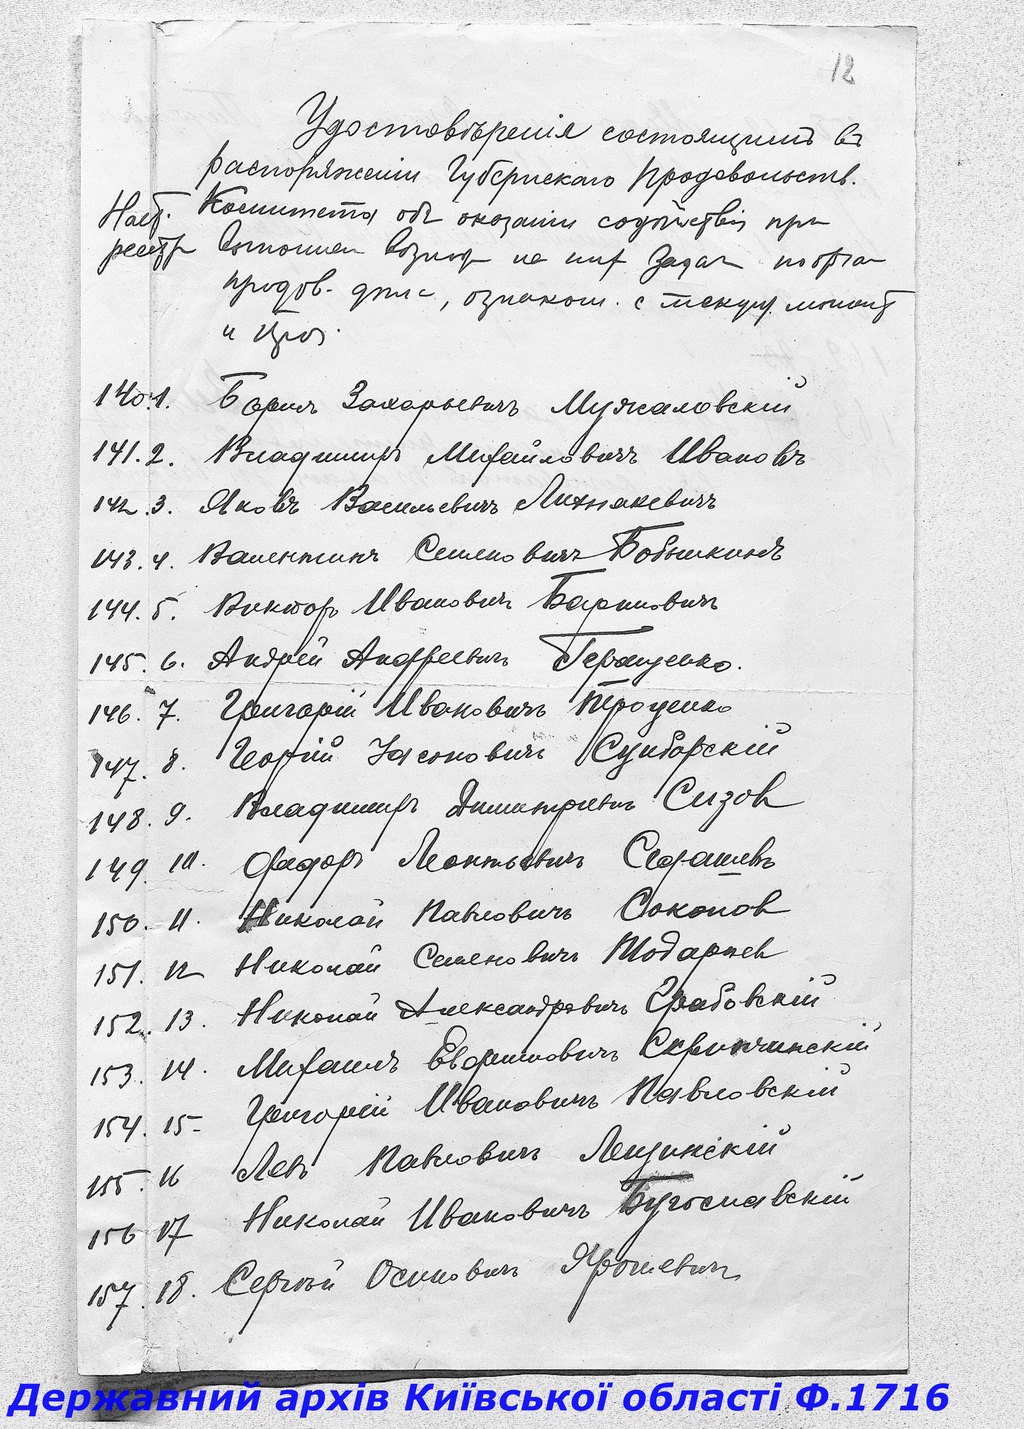 12
Удостовѣренія состоящимъ въ
распоряженіи Губернскаго Продовольств.
Комитета объ оказаніи содѣйствія при
продов. дѣла, ознаком. с текущ. момент
и проч.
140.1. Борисъ Захарьевичъ Мужаловскій
141.2. Владиміръ Михайловичъ Ивановъ
142.3. Яковъ Васильевичъ Лихнякевичъ
143.4. Валентинъ Семеновичъ Бобышкинъ
144.5. Викторъ Ивановичъ Баринович
145.6. Андрей Андреевичъ Геращенко.
146.7. Григорій Ивановичъ Троценко
147.8. Георгій Іасоновичъ Сумборскій
148.9. Владиміръ Дмитріевичъ Сизов
149.10. Федоръ Леонтьевичъ
150.11. Николай Павловичъ Соколов
151.12 Николай Семеновичъ Тодаршев
152.13. Николай Александровичъ Грабовскій
153.14. Михаилъ Евфимовичъ Скрипчинскій
154.15- Григорій Ивановичъ Павловскій
155.16 Левъ Павловичъ Лещинскій
156 17 Николай Ивановичъ Бугославскій
157.18. Сергѣй Осиповичъ Ярошевич
Державний архів Київської області Ф.1716